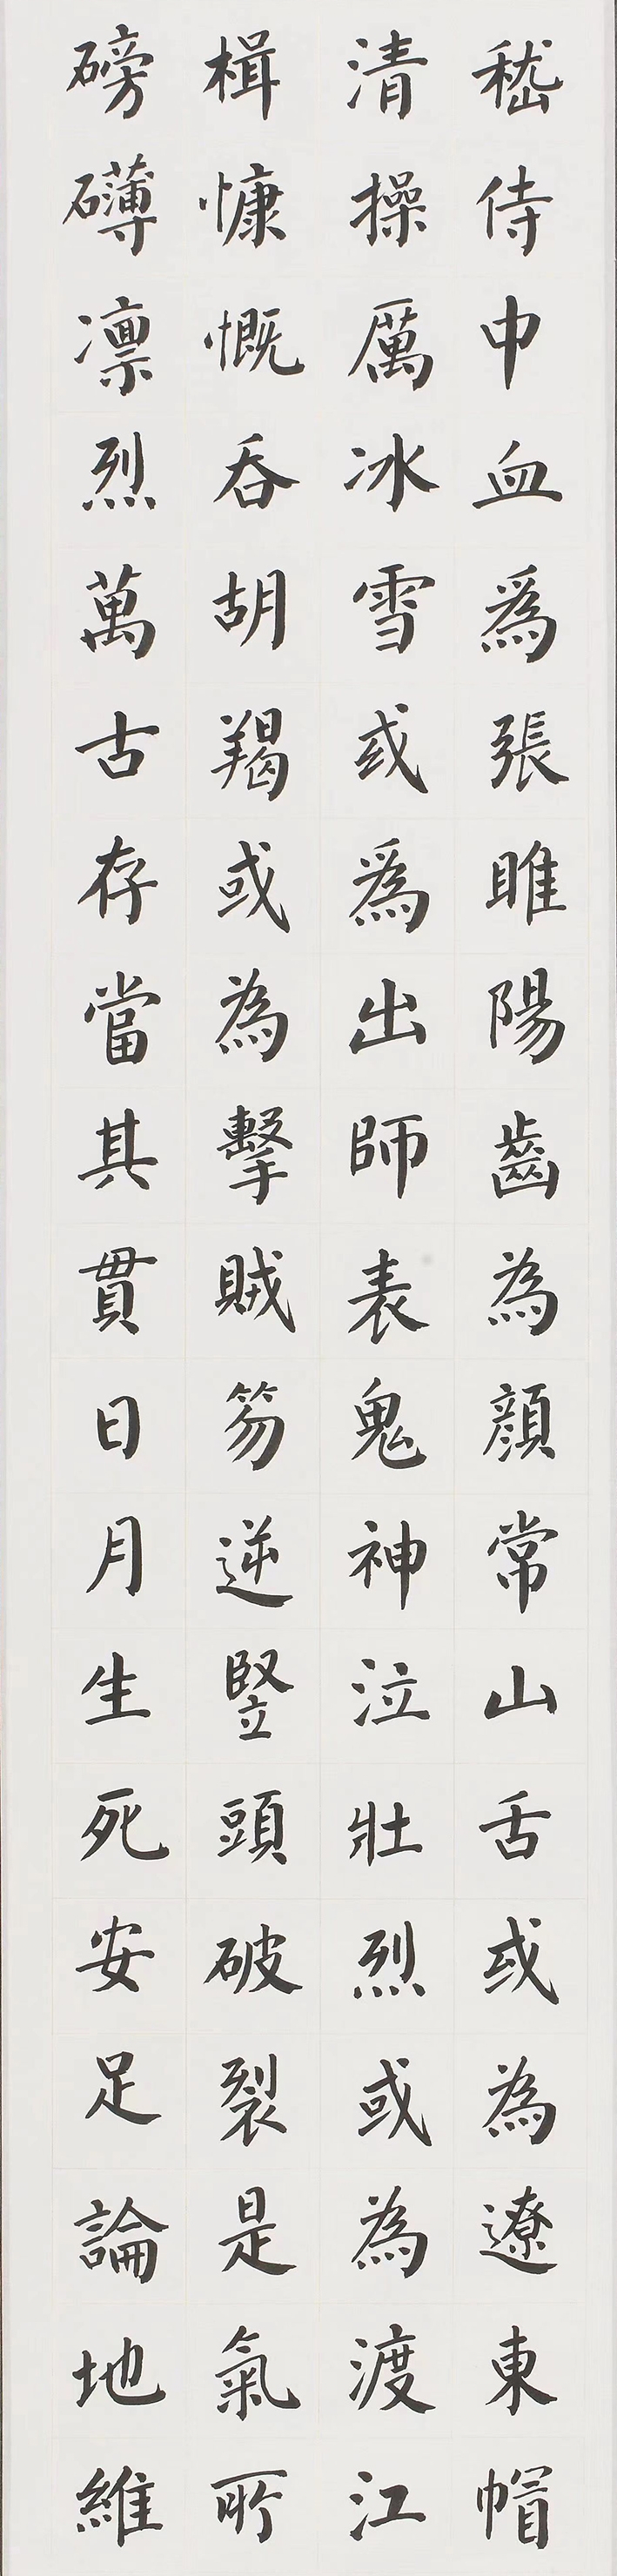 嵇侍中血為張睢陽齒為顏常山舌或為遼東帽
清操厲冰雪或為出師表鬼神泣壯烈或為渡江
楫慷慨吞胡羯或為擊賊笏逆豎頭破裂是氣所
磅礴凜烈萬古存當其貫日月生死安足論地維